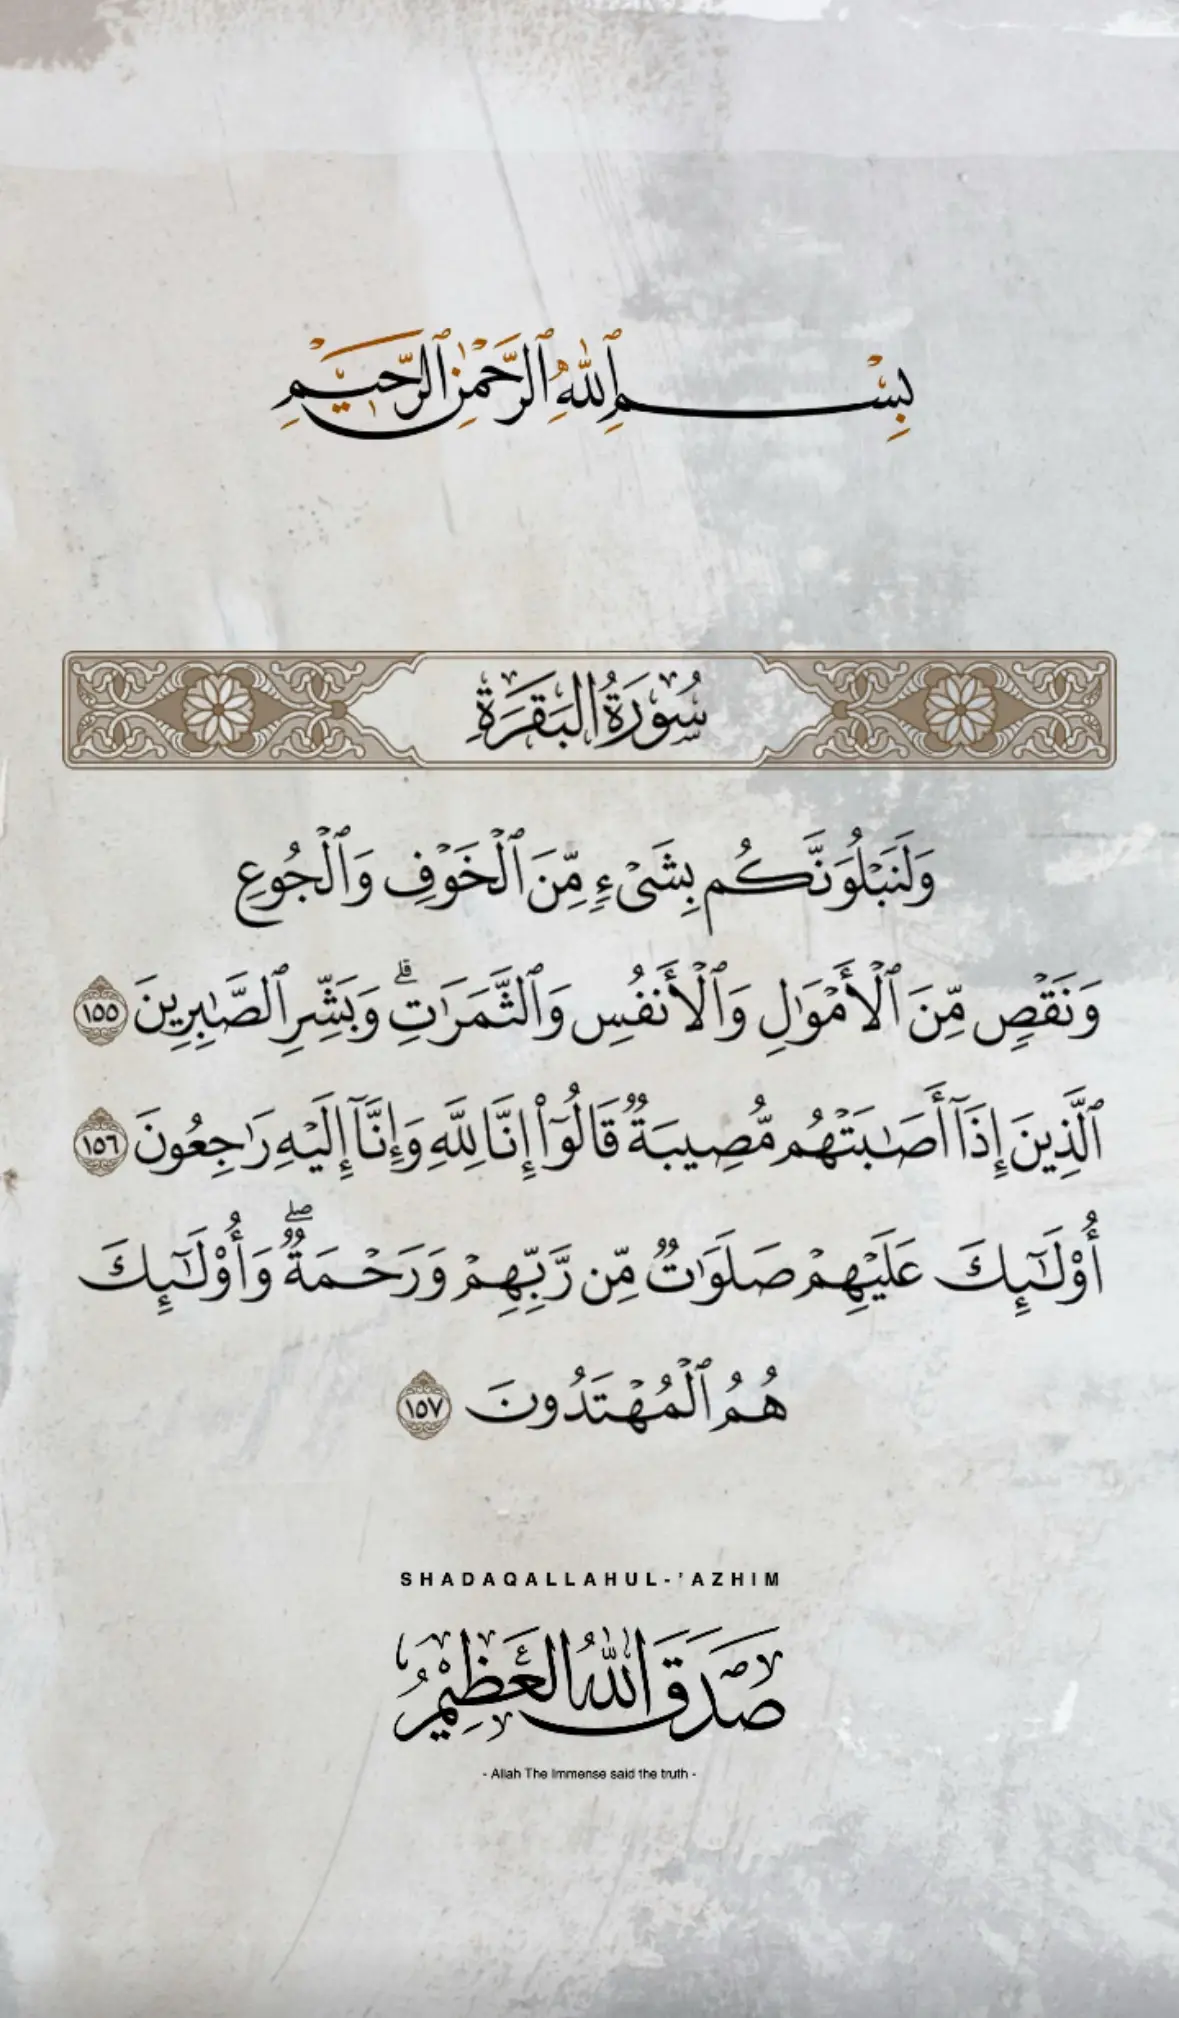 بِسْمِ ٱللَّهِ ٱلرَّحْمَٰنِ ٱلرَّحِيمِ
سُورَةُ الْبَقَرَةِ
وَلَنَبْلُوَنَّكُم بِشَىْءٍ مِّنَ ٱلْخَوْفِ وَٱلْجُوعِ
وَنَقْصٍ مِّنَ ٱلْأَمْوَٰلِ وَٱلْأَنفُسِ وَٱلثَّمَرَٰتِ ۗ وَبَشِّرِ ٱلصَّٰبِرِينَ ١٥٥
ٱلَّذِينَ إِذَآ أَصَٰبَتْهُم مُّصِيبَةٌ قَالُوٓا۟ إِنَّا لِلَّهِ وَإِنَّآ إِلَيْهِ رَٰجِعُونَ ١٥٦
أُو۟لَٰٓئِكَ عَلَيْهِمْ صَلَوَٰتٌ مِّن رَّبِّهِمْ وَرَحْمَةٌ ۖ وَأُو۟لَٰٓئِكَ
هُمُ ٱلْمُهْتَدُونَ ١٥٧
SHADAQALLAHUL-'AZHIM
صَدَقَ اللّٰهُ الْعَظِيْمُ
- Allah The Immense said the truth -